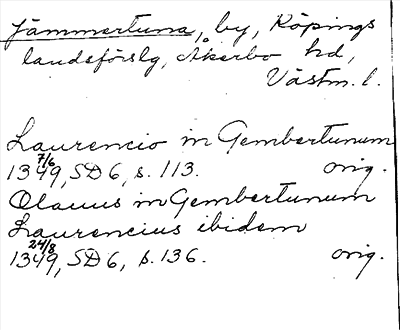 Jämmertuna, by, Köpings
landsförslg, Åkerbo hd,
Västm. l.
Laurencio in Gembertunum
1349, 7/6 SD 6, s. 113. orig.
Olauus in Gembertunum
Laurencius ibidem
1349, 24/8 SD 6, s. 136. orig.